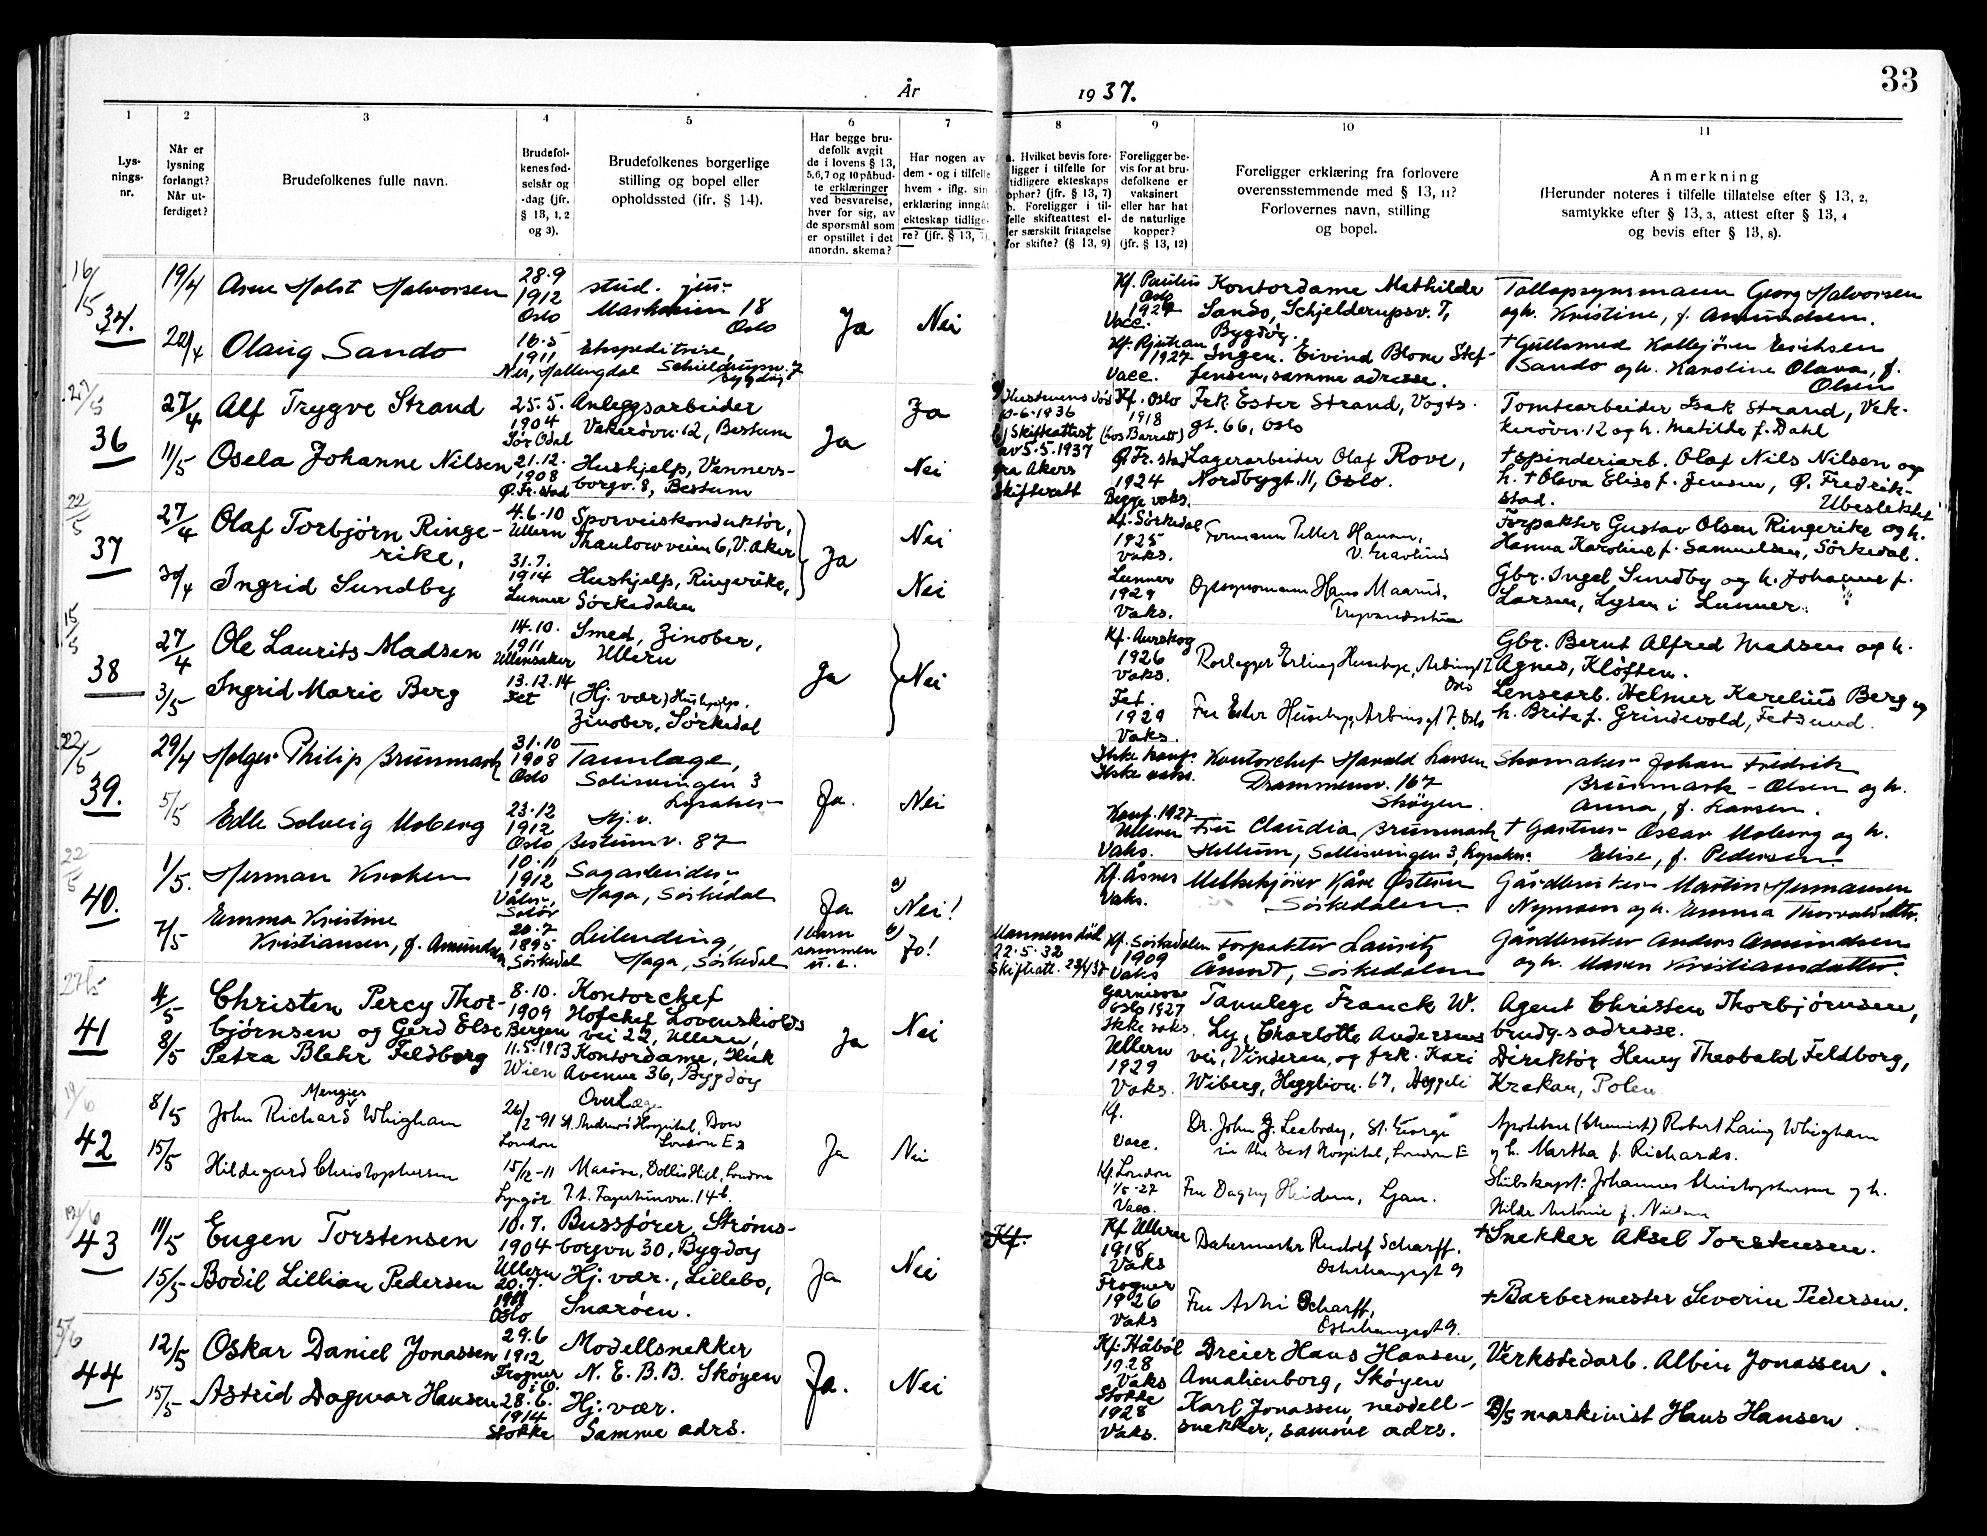 33
År 1937.
1 2 3 4 5 6 7 8 9 10 11
Lys-
nings-
nr.
Når er
lysning
forlangt?
Når ut-
ferdiget?
Brudefolkenes fulle navn.
Brudefol-
kenes fød-
selsår og
-dag (jfr.
§ 13, 1, 2
og 3).
Brudefolkenes borgerlige
stilling og bopel eller
opholdssted (ifr. § 14).
Har begge bru-
defolk avgit
de i lovens § 13,
5,6,7 og 10 påbud-
te erklæringer
ved besvarelse,
hver for sig, av
de spørsmål som
er opstillet i det
anordn. skema?
Har nogen av
dem - og i tilfelle
hvem - iflg. sin
erklæring inngåt
ekteskap tidlige-
re? (jfr. § 13, 7).
a. Hvilket bevis fore-
ligger i tilfelle for
tidligere ekteskaps
ophør? (jfr. § 13, 7)
b. Foreligger i til-
felle skifteattest el-
ler særskilt fritagelse
for skifte? (§ 13, 9)
Foreligger be-
vis for at bru-
defolkene er
vaksinert
eller har hat
de naturlige
kopper?
(jfr. § 13, 12)
Foreligger erklæring fra forlovere
overensstemmende med § 13, 11?
Forlovernes navn, stilling
og bopel.
Anmerkning
(Herunder noteres i tilfelle tillatelse efter § 13, 2,
samtykke efter § 13, 3, attest efter § 13, 4
og bevis efter § 13, 8).
16/5
34.
19/4
Arne Holst Halvorsen
28.9
1912
Oslo
stud. jur.
18
Oslo
Ja
Nei
Kf. Paulus
Oslo
1927
Vacc.
Kontordame Mathilde
Sando, Schjelderupsv. 7,
Bygdøy.
Georg Halvorsen
og h. Kristine, f. Amundsen.
Olaug Sando
16.5
1911
Nes, Hallingdal
Ekspeditrise,
Bygdøy
Kf. Rjukan
1927
Vacc.
Ingen. Eivind Blom Stef-
fensen, samme adresse.
† Gullsmed Hallbjörn Erichsen
Sando og h. Karoline Olava, f.
Olsen
27/5
36
27/4
Alf Trygve Strand
25.5.
1904
Sør Odal
Anleggsarbeider
Vekerøvn. 12, Bestum
Ja
Ja
Hustruens død
10-6-1936
b) Skifteattest
av 5.5.1937
fra Akers
Skifterett
Kf. Oslo
1918
(hos Barratt)
Frk. Ester Strand, Vogts.
gt. 66, Oslo
Tomtearbeider Isak Strand, Vek-
kerøvn. 12 og h. Matilde f. Dahl
11/5
Osela Johanne Nilsen
21.12.
1908
Ø. Fr. stad
Hushjelp, Venners-
borgv. 8, Bestum
Nei
Ø. Fr. stad
1924
Begge vaks.
Lagerarbeider Olaf Rove,
Nordbygt. 11, Oslo.
† Spinderiarb. Olaf Nils Nilsen og
h. † Olava Elise f. Jensen, Ø. Fredrik-
stad. Ubeslektet
22/5
37
27/4
Olaf Torbjørn Ringe-
rike,
4.6.10
Ullern
Sporveiskonduktør,
Thaulowveien 6, V. Aker
Ja
Nei
Kf. Sørkedal
1925
Vaks.
Formann Petter Hansen,
Forpakter Gustav Olsen Ringerike og h.
Hanna Karoline f. Samuelsen, Sørkedal.
30/4
Ingrid Sundby
31.7.
1914
Lunner
Hushjelp, Ringerike,
Sørkedalen
Nei
Lunner
1929
Vaks.
Opsynsmann Hans Maarud,
Gbr. Ingel Sundby og h. Johanne f.
Larsen, Lysen i Lunner.
15/5
38
27/4
Ole Laurits Madsen
14.10.
1911
Ullensaker
Smed, Zinober,
Ullern
Ja
Nei
Kf. Aurskog
1926
Vaks.
Rørlegger Erling Huseby, Arbinsgt 7
Oslo
Gbr. Bernt Alfred Madsen og h.
Agnes, Kløften.
3/5
Ingrid Marie Berg
13.12.14
Fet
(Hj. vær) Hushjelp,
Zinober, Sørkedal
Fet.
1929
Vaks.
Fru Ester Huseby, Arbinsgt 7, Oslo
Lensearb. Helmer Karelius Berg og
h. Brita f. Grindevold, Fetsund.
22/5
39.
29/4
Holger Philip Brunmark
31.10
1908
Oslo
Tannlæge,
Solisvingen 3
Lysaker
Ja.
Nei
Ikke konf.
Ikke vaks.
Kontorchef Harald Larsen
Drammensv. 167
Skøyen.
Skomaker Johan Fredrik
Brunmark-Olsen og h.
Anna, f. Larsen.
5/5
Edle Solveig Moberg
23.12
1912
Oslo
Hj. v.
Bestumv. 87
Konf. 1927
Ullern
Vaks.
Fru Claudia Brunmark
Hellum, Sollisvingen 3, Lysaker
† Gartner Oscar Moberg og h.
Elise, f. Pedersen
22/5
40.
1/5.
Herman Kroken
10.11
1912
Våler,
Solør
Sagarbeider
Haga, Sørkedal
Ja
1 barn
sammen
a)
Nei!
Kf. Åsnes
Vaks.
Melkekjører Kåre Østern
Sørkedalen.
Gårdbruker Martin Hermansen
Nymoen og h. Emma Thorvaldsdtr.
7/5
Emma Kristine
Kristiansen, f. Amundsen
20.7
1895
Sørkedal
Leilending,
Haga, Sørkedal
b)
Jo!
Mannens död
22.5.32
Skifteatt. 29/4/37
Kf. Sørkedalen
1909
Vaks
Forpakter Lauritz
Åmodt, Sørkedalen
Gårdbruker Anders Amundsen
og h. Maren Kristiansdatter.
27/5
41
4/5
8/5
Christen Percy Thor-
bjørnsen og Gerd Else
Petra Blehr Feldborg
8.10.
1909
Bergen
11.5.1913
Wien
Kontorchef
Hofchef Løvenskiolds
vei 22, Ullern,
Kontordame, Huk
Avenue 36, Bygdøy
Ja
Nei
Garnison
Oslo 1927
Ikke vaks.
Ullern
1929
Vaks.
Tannlege Franck W.
Ly, Charlotte Andersens
vei, Vinderen, og frk. Kari
Wiberg, Hegglivn. 67, Heggeli
Agent Christen Thorbjørnsen,
brudg.s adresse.
Direktör Henry Theobald Feldborg,
Krakau, Polen
19/6
42
8/5
Menzies
John Richard Whigham
26/2-91
London
Overlæge
St. Andrew's Hospital, Bow
London E 3
Ja
Nei
Kf.
Vacc.
Dr. John J. Leebody, St. George
in the East Hospital, London E
Apoteker (Chemist) Robert Laing Whigham
og h. Martha f. Richards.
15/5
Hildegard Christophersen
15/12-11
Lyngør
Masøse, Dollis Hill, London
14b.
Kf. London
1/5-27
Vacc.
Fru Dagny Heidem, Ljan.
Skibskapt. Johannes Christophersen og h.
Hilda Antonie f. Nielsen
19/6
43
11/5
Eugen Torstensen
10.7.
1904
Ullern
Bussfører, Strøms-
borgvn 30, Bygdøy
Ja
Nei
Kf.
Kf. Ullern
1918
Vaks
Bakermester Rudolf Scharff.
Østehausgt 9
† Snekker Aksel Torstensen.
15/5
Bodil Lillian Pedersen
20.7.
Oslo
Hj. vær., Lillebo,
Snarøen.
Frogner
1926
Vaks
Fru Astri Scharff,
† Barbermester Severin Pedersen.
5/6
44
12/5
Oskar Daniel Jonassen
29.6
1912
Frogner
i O.
Modellsnekker
N. E. B. B. Skøyen
Ja.
Nei
Kf. Håbøl
1928
Vaks
Dreier Hans Hansen,
Amalienborg, Skøyen
Verkstedarb. Albin Jonassen.
15/5
Astrid Dagmar Hansen
28.6.
1914
Stokke
Hj. vær.
Samme adrs.
Stokke
1928
Vaks.
Karl Jonassen, modell-
snekker, samme adrs.
D/S maskinist Hans Hansen